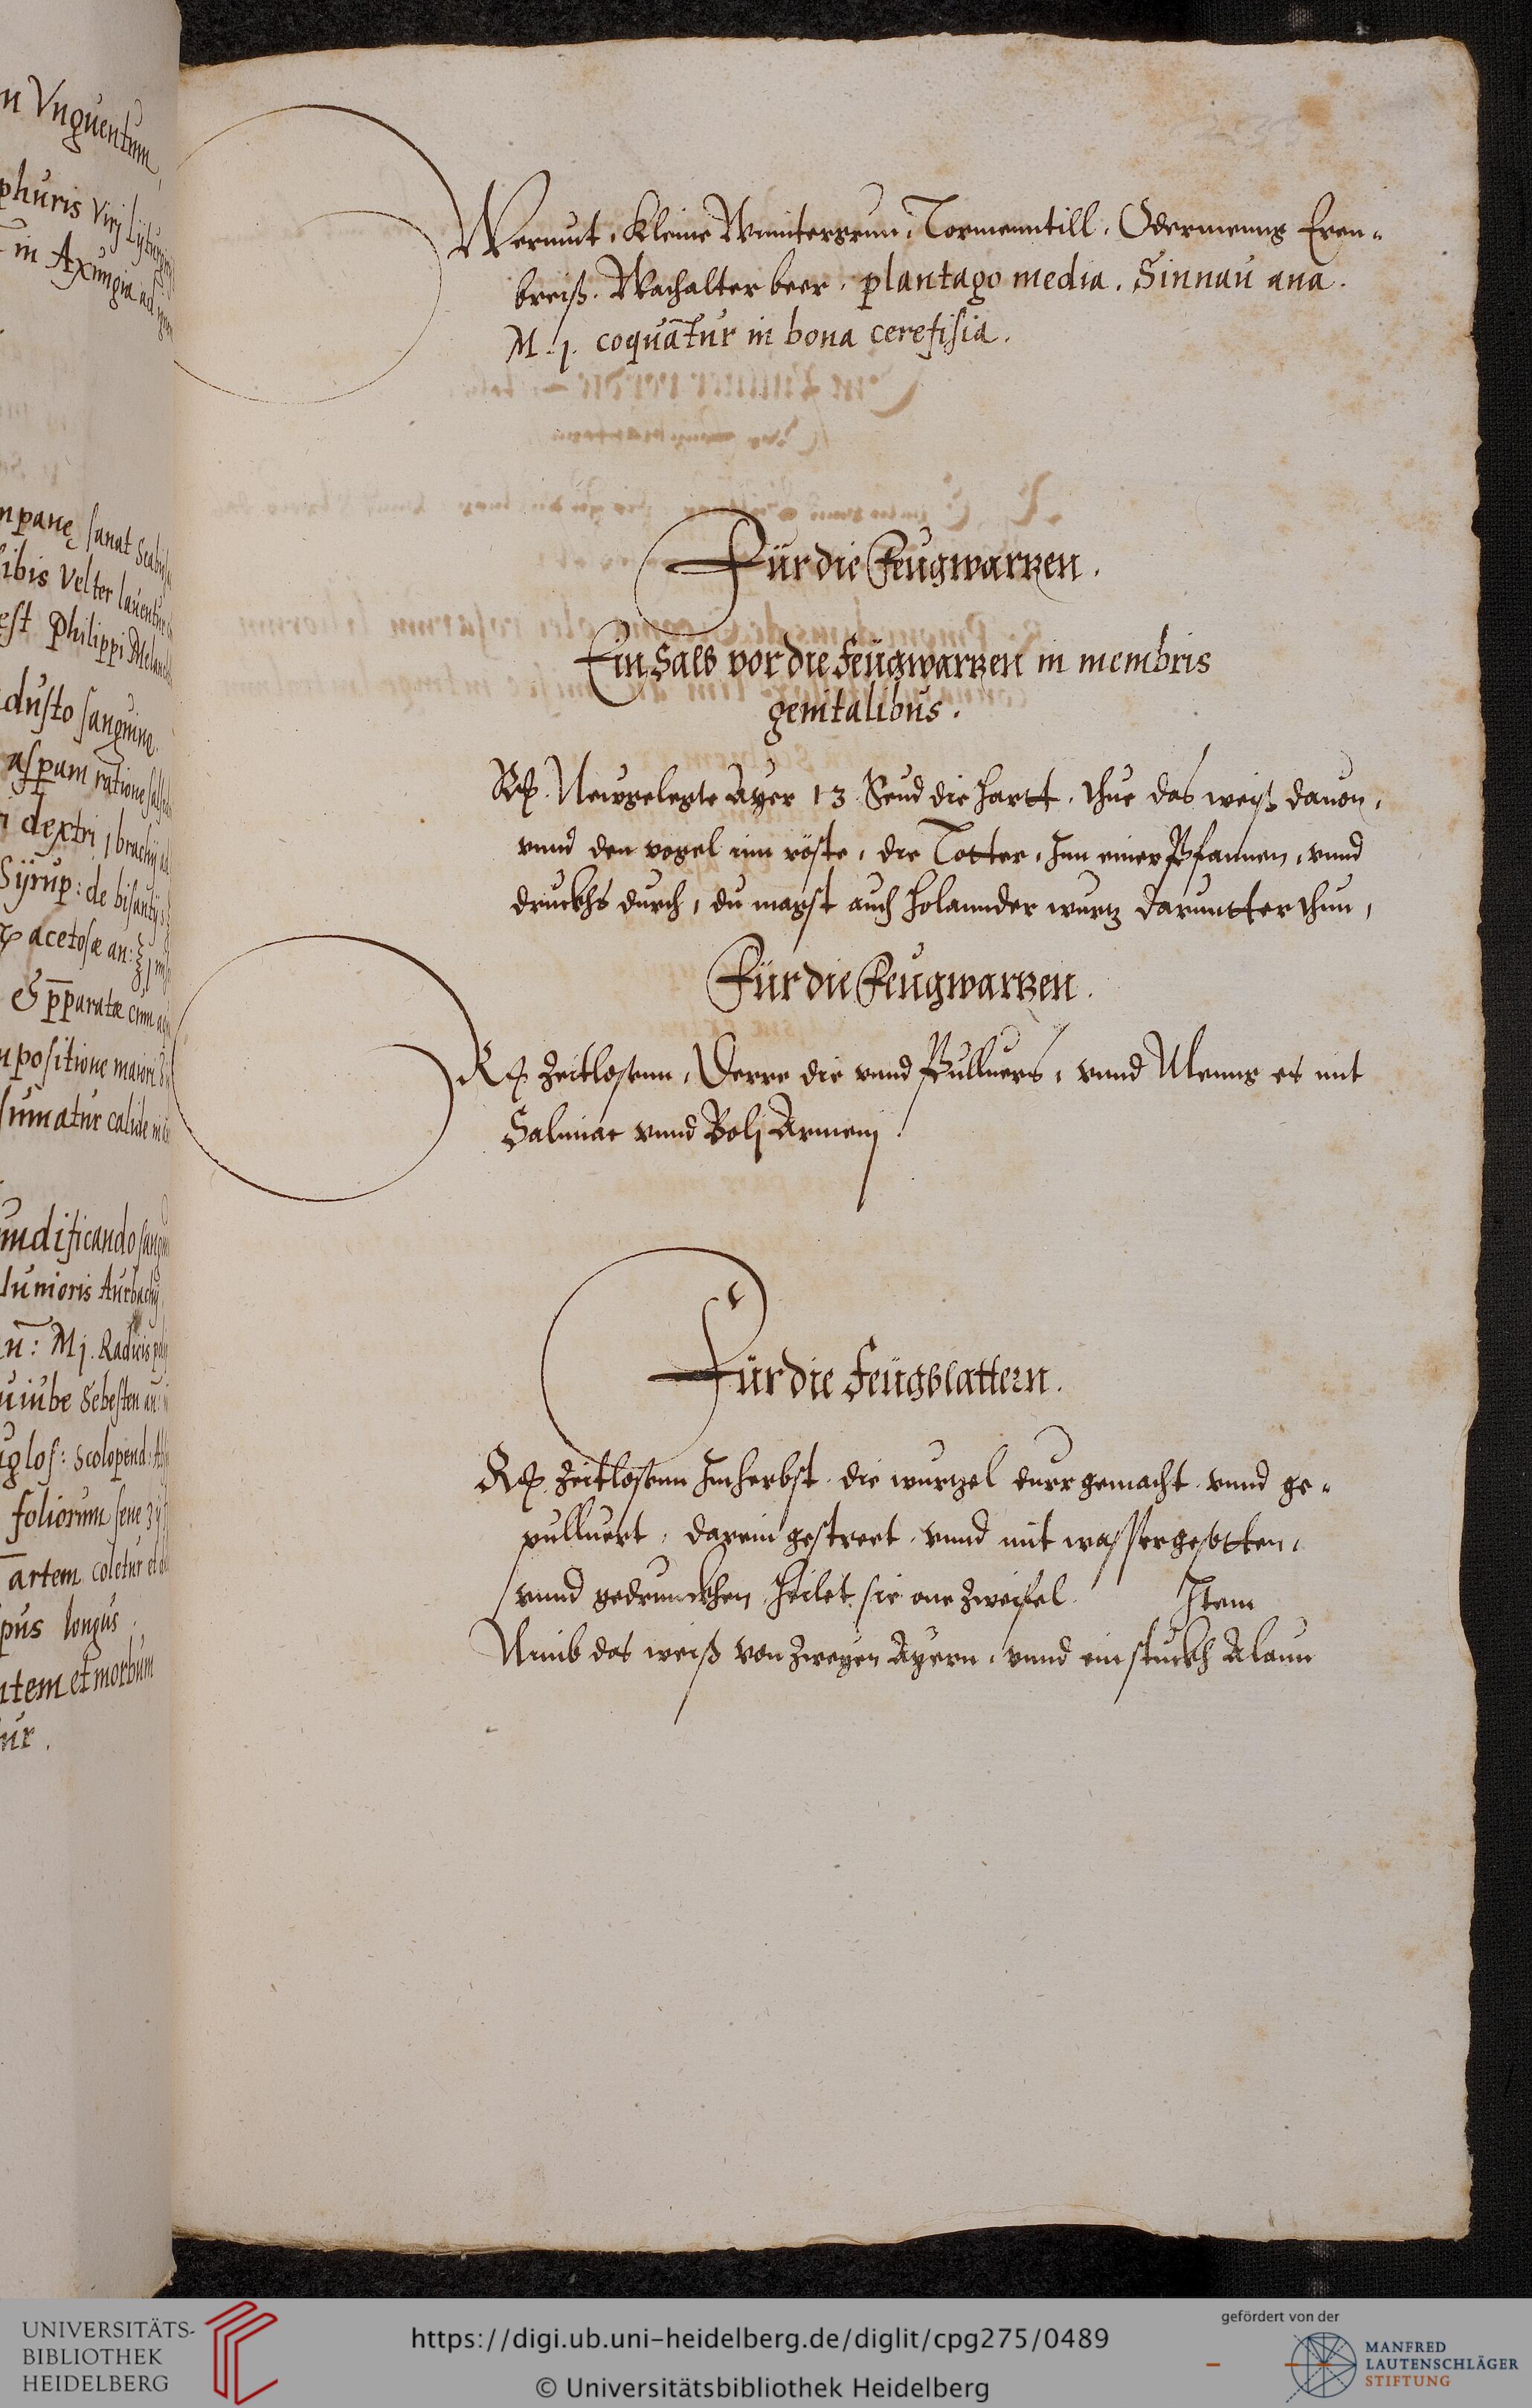 n Vnguentum,
phuris Viuj Lytargirj
in Axungia ad
mpane sanat Scabi
ibis Velter lauentur
est Philippi Melanch
dusto sanguine.
aspum ratione
i dextri, brachij
Sijrup: de bisantijs
acetosæ an:
& pparatæ cum
mpositione maiori
sumatur calide
undificando sang
Iunioris Aurbachij
M j. Radicis
uiube Sebesten an:
uglos: Scolopend:
foliorum sene
artem coletur et
pus longus.
ntem et morbum
ur.
Wermut, kleine Winntergrun, Tormenntill, Odermenng Eren-
breiß. Wachalter beer. plantago media. Sinnau ana.
M. j. coquātur in bona cerefisia.
Für die Feugwartzen.
Ein Salb vor die feugwartzen in membris
genitalibus.
Rp. Newgelegte Ayer 13. Seud die hartt, thue das weiß dauon,
vnnd den vogel inn röste, die Totter, Inn einer Pfannen, vnnd
druckhs durch, du magst auch holannder wurtz daruntter thun,
Für die Feugwartzen.
Rp. Zeitlosenn, Derre die vnnd Pulluers, vnnd Menng es mit
Salmiac vnnd Bolj Armenj.
Für die feugblattern.
Rp. Zeitlosenn Im herbst, die wurtzel durr gemacht, vnnd ge-
pulluert, darein gestreet, vnnd mit wasser gesotten,
vnnd gedrunckhen heilet sie one Zweifel. Item
Nimb das weiß von Zweyen Ayern, vnnd ein stuckh Alaun
UNIVERSITÄTS-
BIBLIOTHEK
HEIDELBERG
https://digi.ub.uni-heidelberg.de/diglit/cpg275/0489
© Universitätsbibliothek Heidelberg
gefördert von der
MANFRED
LAUTENSCHLÄGER
STIFTUNG